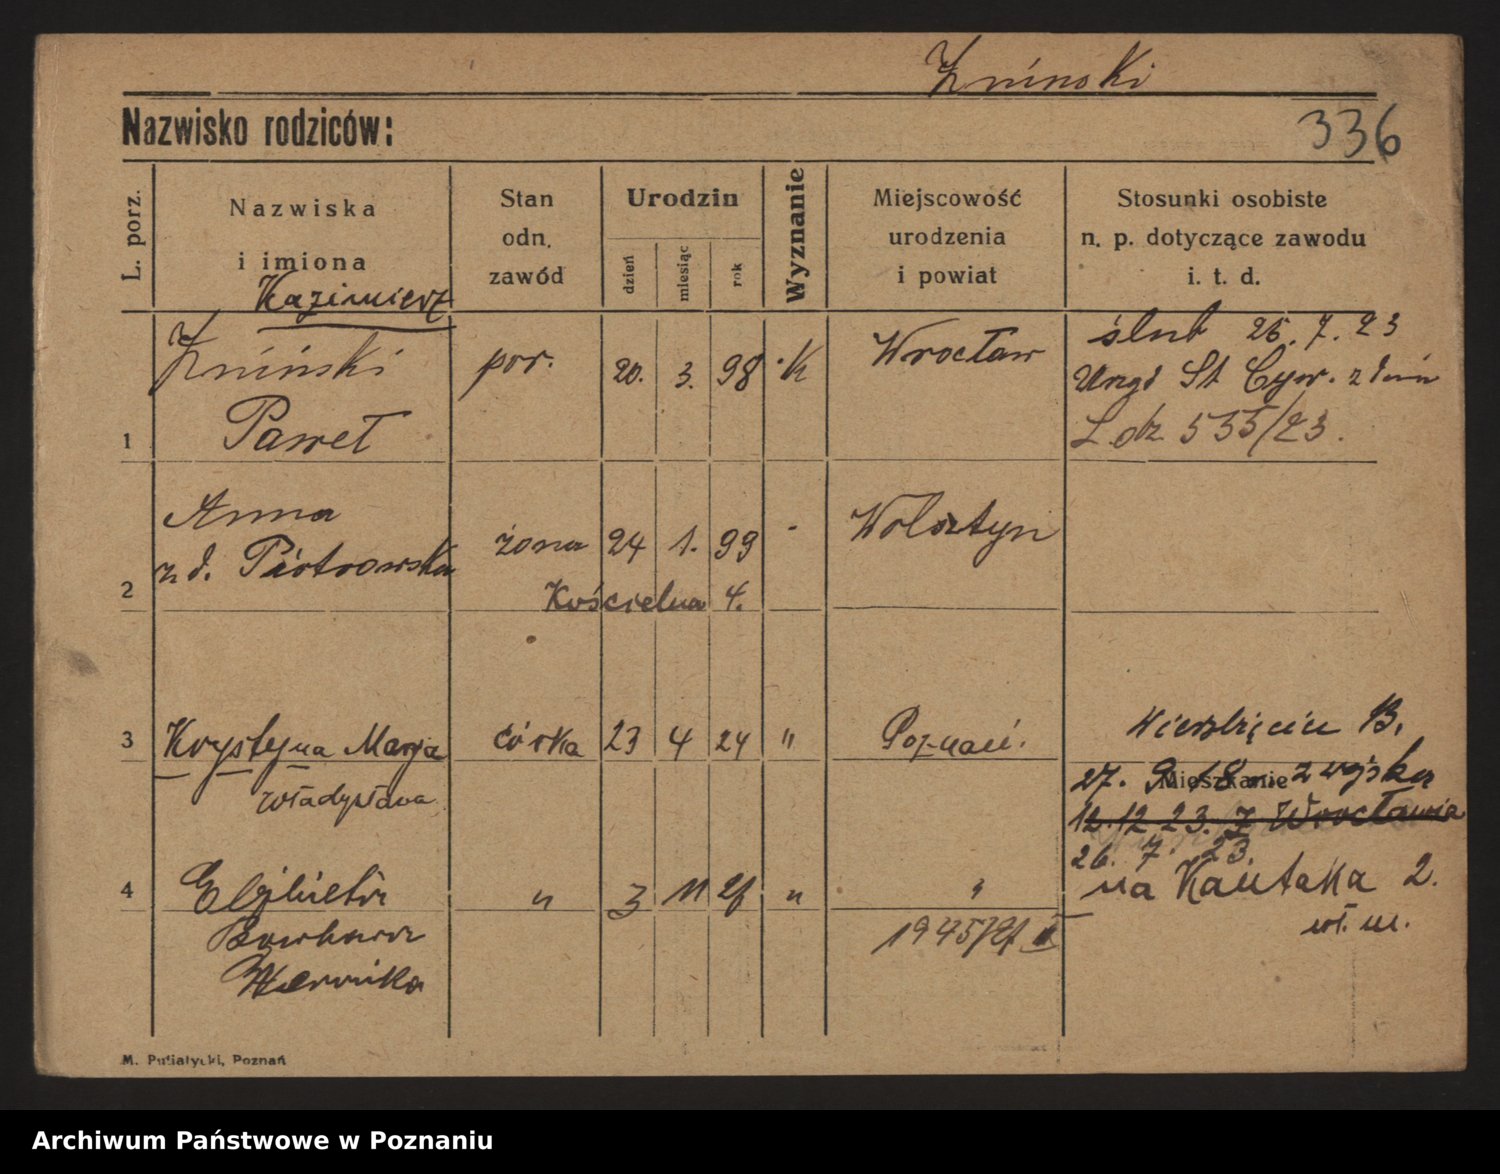 Żninski
Nazwisko rodziców:
336
L. porz.
Nazwiska
i imiona
Stan
odn.
zawód
Urodzin
dzień
miesiąc
rok
Wyznanie
Miejscowość
urodzenia
i powiat
Stosunki osobiste
n. p. dotyczące zawodu
i. t. d.
Kazimierz
1
Żniński
Paweł
por.
20. 3. 98
K
Wrocław
ślub 26. 7. 23
Urząd St Cyw.
L. dz. 535/23.
2
Anna
z d. Piotrowska
żona
24 1. 99
Wolsztyn
Kościelna 4.
3
Krystyna Marja
Władysława
córka
23 4 24
"
Poznań.
B.
Mieszkanie
27. 9. 18. z wojska
12. 12. 23. z Wrocławia
26. 7. 23.
na Kantaka 2.
wł. m.
4
Elżbieta
Barbara
Weronika
"
3 11 26
"
"
1945/26
M. Putiatycki, Poznań
Archiwum Państwowe w Poznaniu